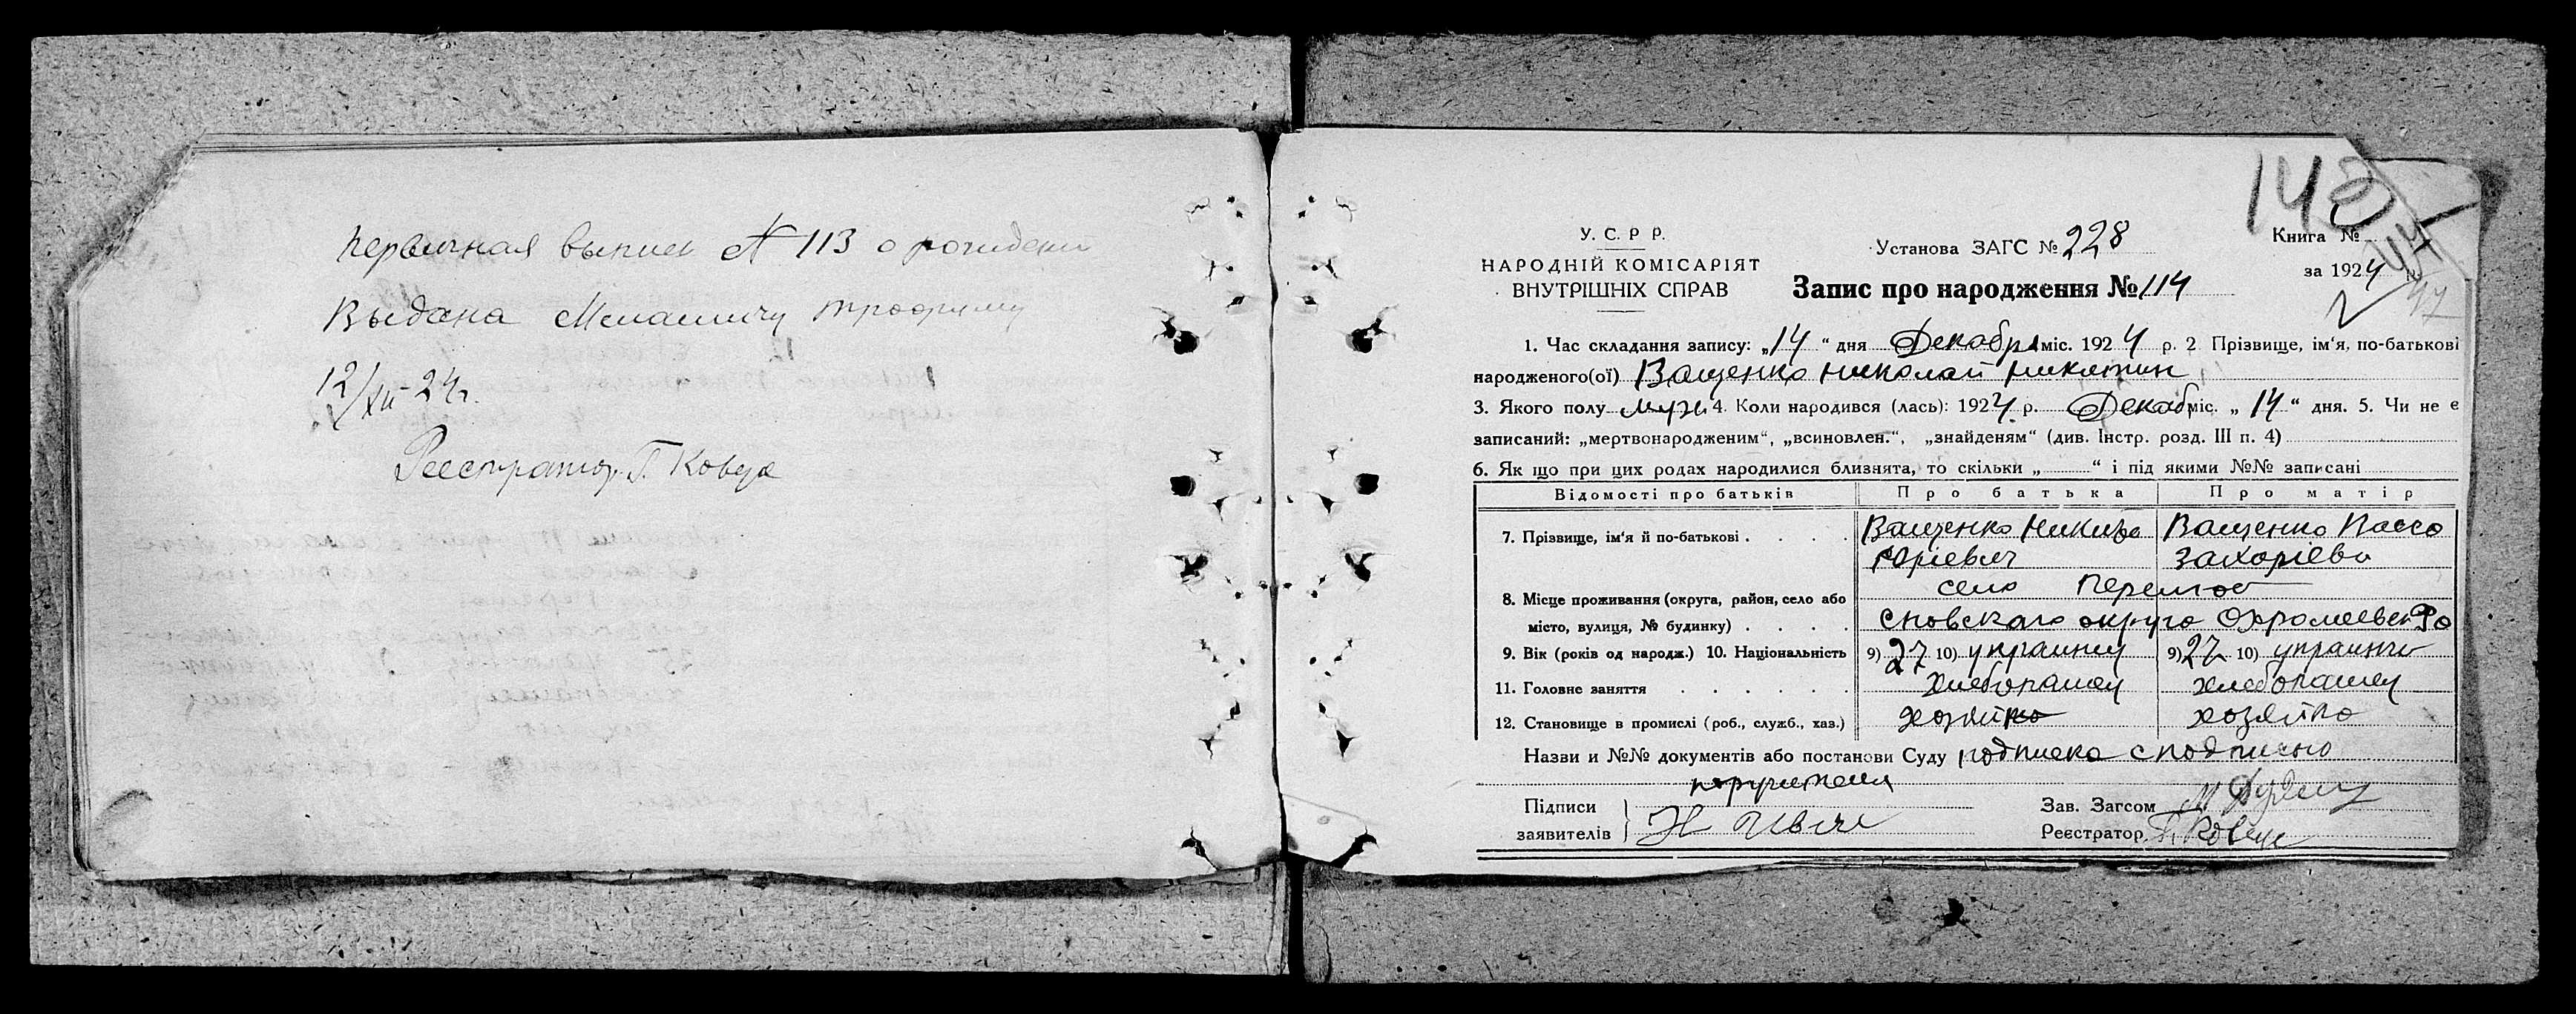 первичная выпись № 113 о рождени
Выдана трофиму
12/XII-24г.
Реестратор Г. Ковца
142
У. С. Р Р.
НАРОДНІЙ КОМІСАРІЯТ
ВНУТРІШНІХ СПРАВ
Установа ЗАГС № 228
Запис про народження № 114
Книга №
за 1924 р.
47
1. Час складання запису: „14“ дня Декабря міс. 1924 р. 2 Прізвище, ім‘я, по-батькові
народженого(ої) Ващенко Николай Никитин
3. Якого полу муж. 4. Коли народився (лась): 1924 р. Декаб міс. „14“ дня. 5. Чи не є
записаний: „мертвонародженим“, „всиновлен.“, „знайденям“ (див. Інстр. розд. III п. 4)
6. Як що при цих родах народилися близнята, то скільки „ “ і під якими №№ записані
Відомості про батьків Про батька Про матір
7. Прізвище, ім‘я й по-батькові . . . . Ващенко Никита Ващенко
Юріевич Захоріева
село Перелюб
8. Місце проживання (округа, район, село або
місто, вулиця, № будинку) . . . . Сновского округо Охромеевск Ро
9. Вік (років од народж.) 10. Національність 9) 27 10) украинец 9) 27 10) украинко
11. Головне заняття . . . . . . хлебопашец хлебопашец
12. Становище в промислі (роб., служб., хаз.) хозяйко хозяйко
Назви и №№ документів або постанови Суду подписка с подписью
поручителя
Підписи
заявителів Н
Зав. Загсом М
Реєстратор Г. Ковца